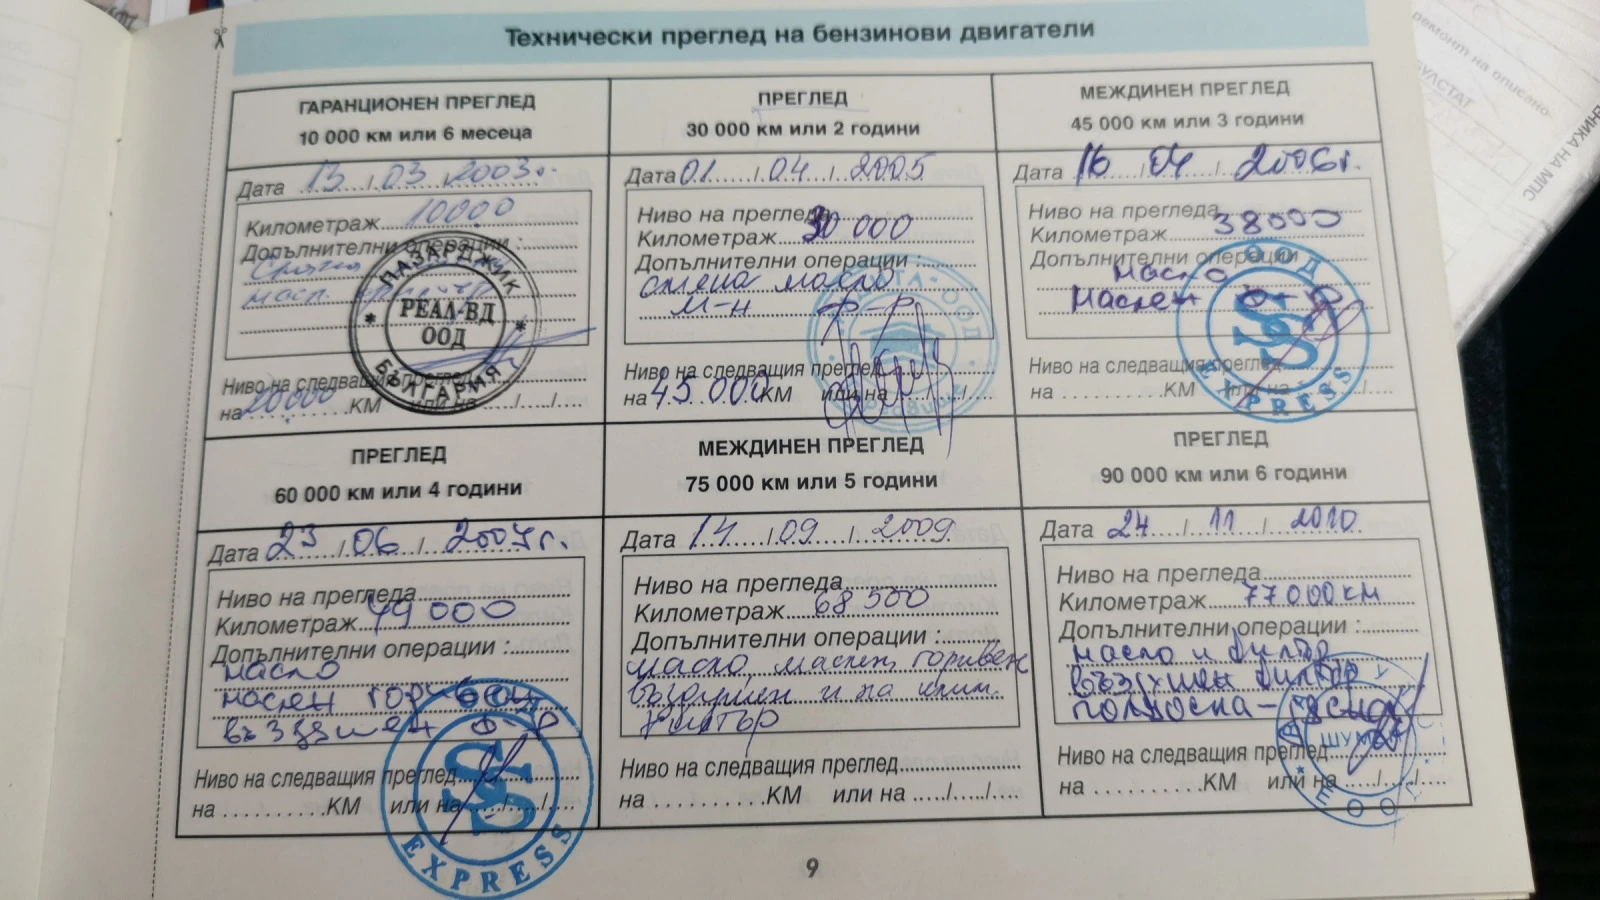 Технически преглед на бензинови двигатели
ГАРАНЦИОНЕН ПРЕГЛЕД
10 000 км или 6 месеца
Дата 13 / 03 / 2003г.
Километраж 10000
Допълнителни операции :
масл.
ПАЗАРДЖИК
РЕАЛ-ВД
ООД
БЪЛГАРИЯ
Ниво на следващия преглед
на 20000 КМ или на
ПРЕГЛЕД
30 000 км или 2 години
Дата 01 / 04 / 2005
Ниво на прегледа
Километраж 30 000
Допълнителни операции :
смяна масло
м-н ф-р
Ниво на следващия преглед
на 45 000 КМ или на
МЕЖДИНЕН ПРЕГЛЕД
45 000 км или 3 години
Дата 16 / 04 / 2006г.
Ниво на прегледа
Километраж 38000
Допълнителни операции
масло
маслен ф-р
ООД
EXPRESS
Ниво на следващия преглед
на КМ или на
ПРЕГЛЕД
60 000 км или 4 години
Дата 23 / 06 / 2007г.
Ниво на прегледа
Километраж 49000
Допълнителни операции :
масло
маслен горивен
въздушен ф-р
Ниво на следващия преглед
на КМ или на
EXPRESS
МЕЖДИНЕН ПРЕГЛЕД
75 000 км или 5 години
Дата 14 / 09 / 2009
Ниво на прегледа
Километраж 68 500
Допълнителни операции :
масло, маслен, горивен
въздушен и на клим.
филтър
Ниво на следващия преглед
на КМ или на
ПРЕГЛЕД
90 000 км или 6 години
Дата 24 / 11 / 2010
Ниво на прегледа
Километраж 77000км
Допълнителни операции :
масло и филтър
въздушен филтър
ШУМЕН
ЕООД
Ниво на следващия преглед
на КМ или на
9
ремонт на описано-
БУЛСТАТ
НИКА НА МПС